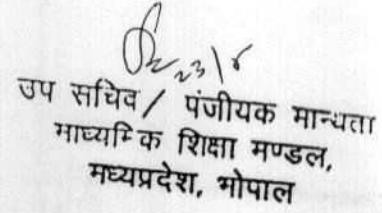 23/8
उप सचिव / पंजीयक मान्यता
माध्यमिक शिक्षा मण्डल,
मध्यप्रदेश, भोपाल